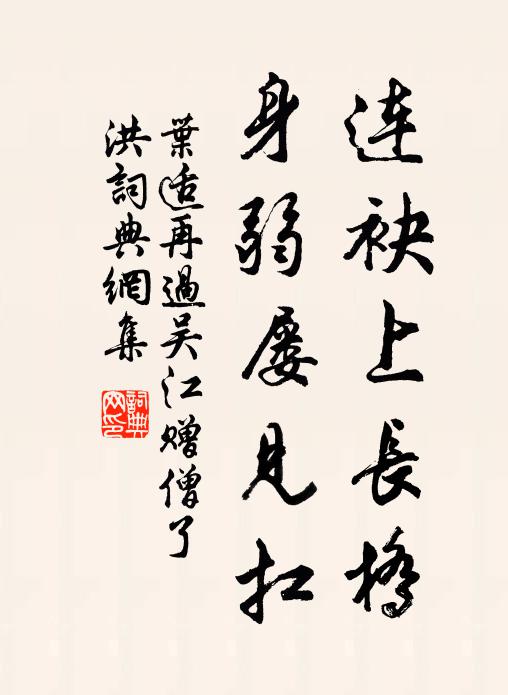 连袂上長橋
身弱屡見扛
葉适再過吴江贈僧了
洪詞典網集
詞典网印